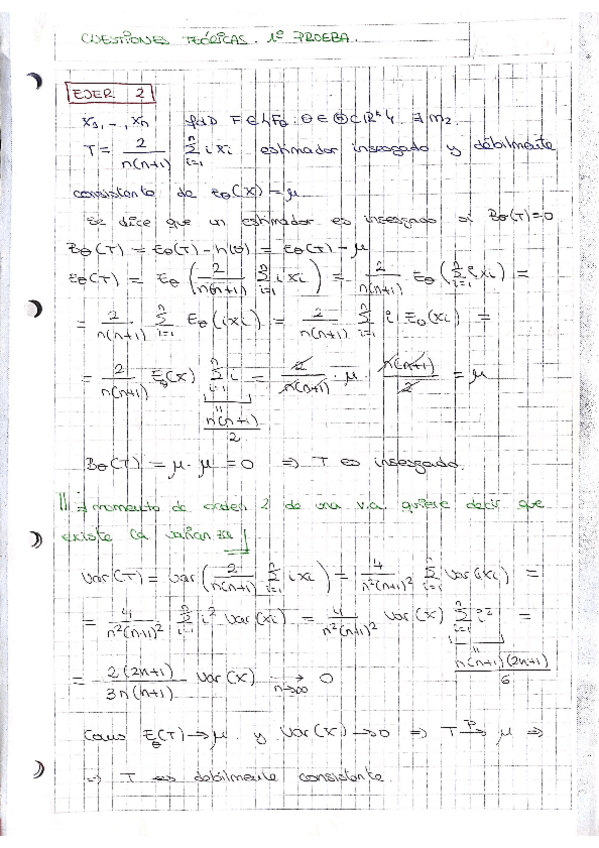 CUESTIONES TEÓRICAS. 1º PRUEBA.
EJER. 2
X₁, -, Xn F ∈ {Fθ: θ ∈ Θ ⊂ ℝᵏ}. ∃ m₂.
T = 2/(n(n+1)) Σᵢ₌₁ⁿ i xᵢ estimador insesgado y débilmente
consistente de Eθ(X) = μ
Se dice que un estimador es insesgado si Bθ(T)=0
Bθ(T) = Eθ(T) - h(θ) = Eθ(T) - μ
Eθ(T) = Eθ(2/(n(n+1)) Σᵢ₌₁ⁿ i xᵢ) = 2/(n(n+1)) Eθ(Σᵢ₌₁ⁿ i xᵢ) =
= 2/(n(n+1)) Σᵢ₌₁ⁿ Eθ(i xᵢ) = 2/(n(n+1)) Σᵢ₌₁ⁿ i Eθ(xᵢ) =
= 2/(n(n+1)) Eθ(X) Σᵢ₌₁ⁿ i = 2/(n(n+1)) · μ · n(n+1)/2 = μ
n(n+1)/2
Bθ(T) = μ - μ = 0 ⇒ T es insesgado.
∃ momento de orden 2 de una v.a. quiere decir que
existe la varianza
Var(T) = Var(2/(n(n+1)) Σᵢ₌₁ⁿ i xᵢ) = 4/(n²(n+1)²) Σᵢ₌₁ⁿ Var(i xᵢ) =
= 4/(n²(n+1)²) Σᵢ₌₁ⁿ i² Var(xᵢ) = 4/(n²(n+1)²) Var(X) Σᵢ₌₁ⁿ i² =
n(n+1)(2n+1)/6
= 2(2n+1)/(3n(n+1)) Var(X) →n→∞ 0
Como Eθ(T) → μ y Var(X) → 0 ⇒ T →ᴾ μ ⇒
⇒ T es débilmente consistente